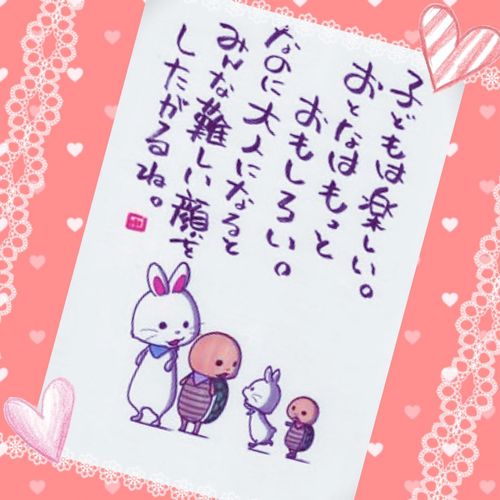 子どもは楽しい。
おとなはもっと
おもしろい。
なのに大人になると
みんな難しい顔を
したがるね。